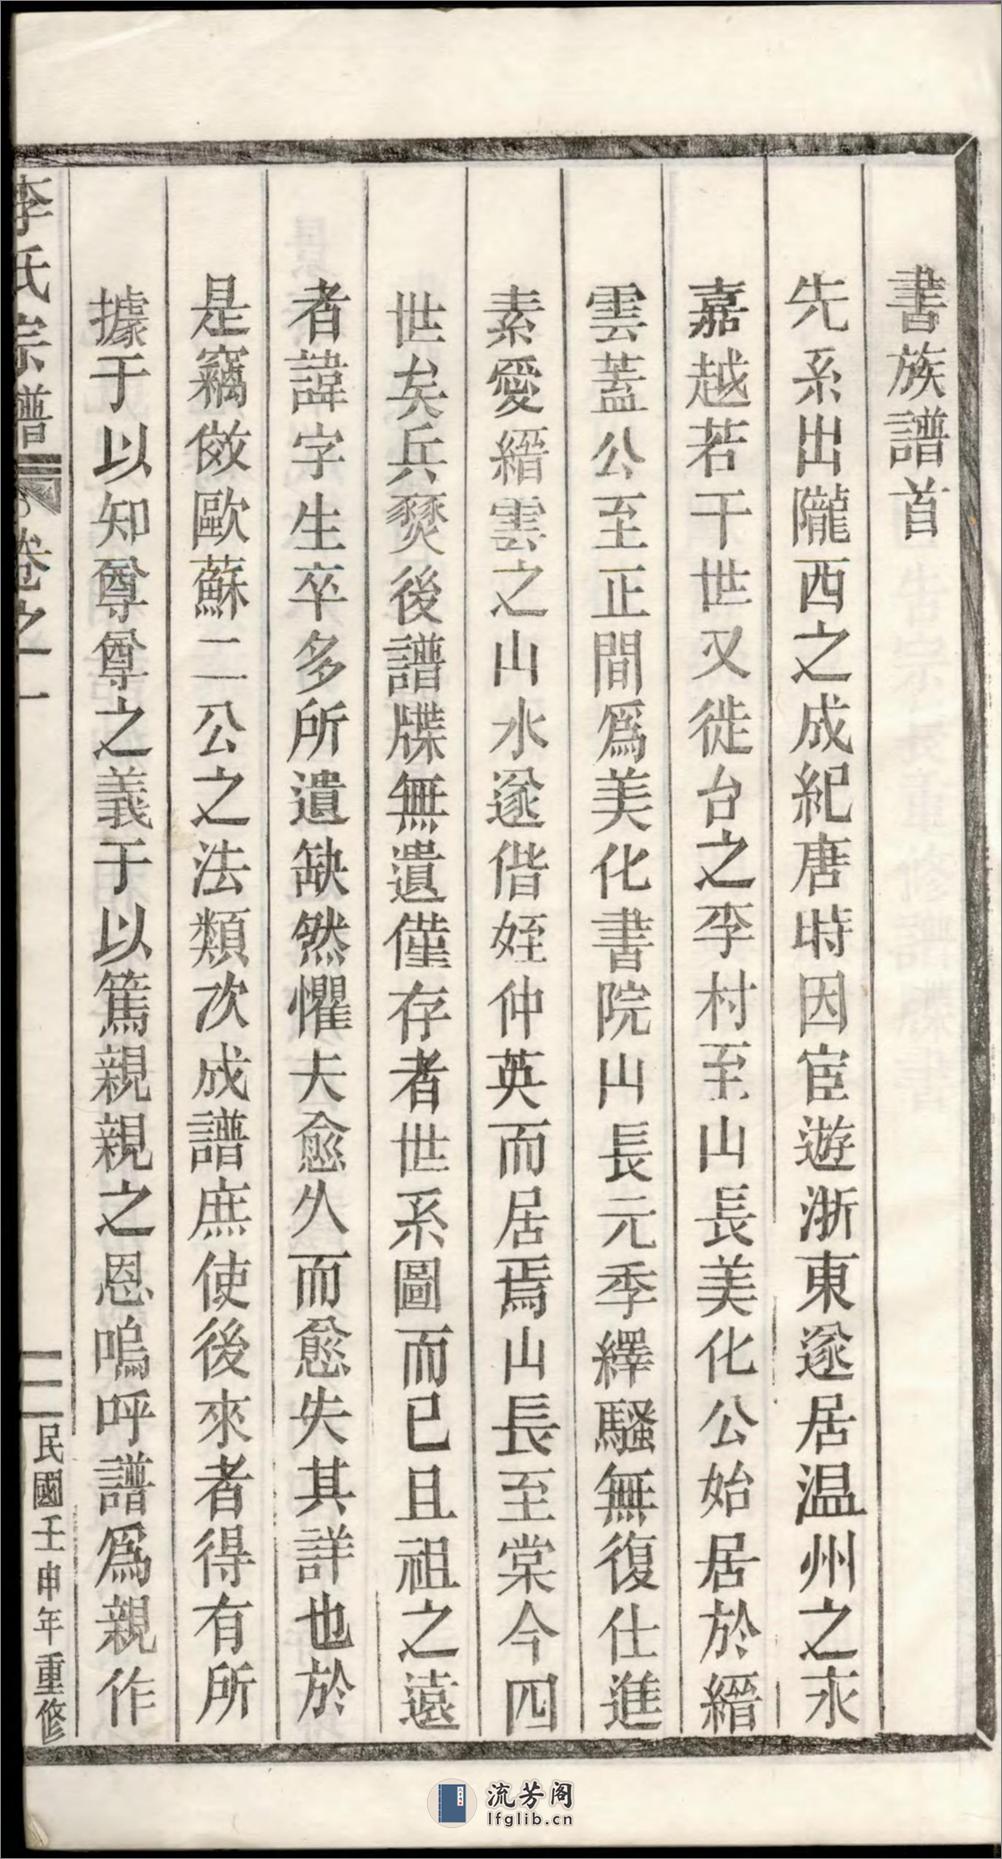 書族譜首
先系出隴西之成紀唐時因宦遊浙東遂居温州之永
嘉越若干世又徙台之李村至山長美化公始居於縉
雲蓋公至正間爲美化書院山長元季繹騷無復仕進
素愛縉雲之山水遂偕姪仲英而居焉山長至棠今四
世矣兵燹後譜牒無遺僅存者世系圖而已且祖之遠
者諱字生卒多所遺缺然懼夫愈久而愈失其詳也於
是竊倣歐蘇二公之法類次成譜庶使後來者得有所
據于以知尊尊之義于以篤親親之恩嗚呼譜爲親作
李氏宗譜
卷之一
二
民國壬申年重修
流芳阁
lfglib.cn